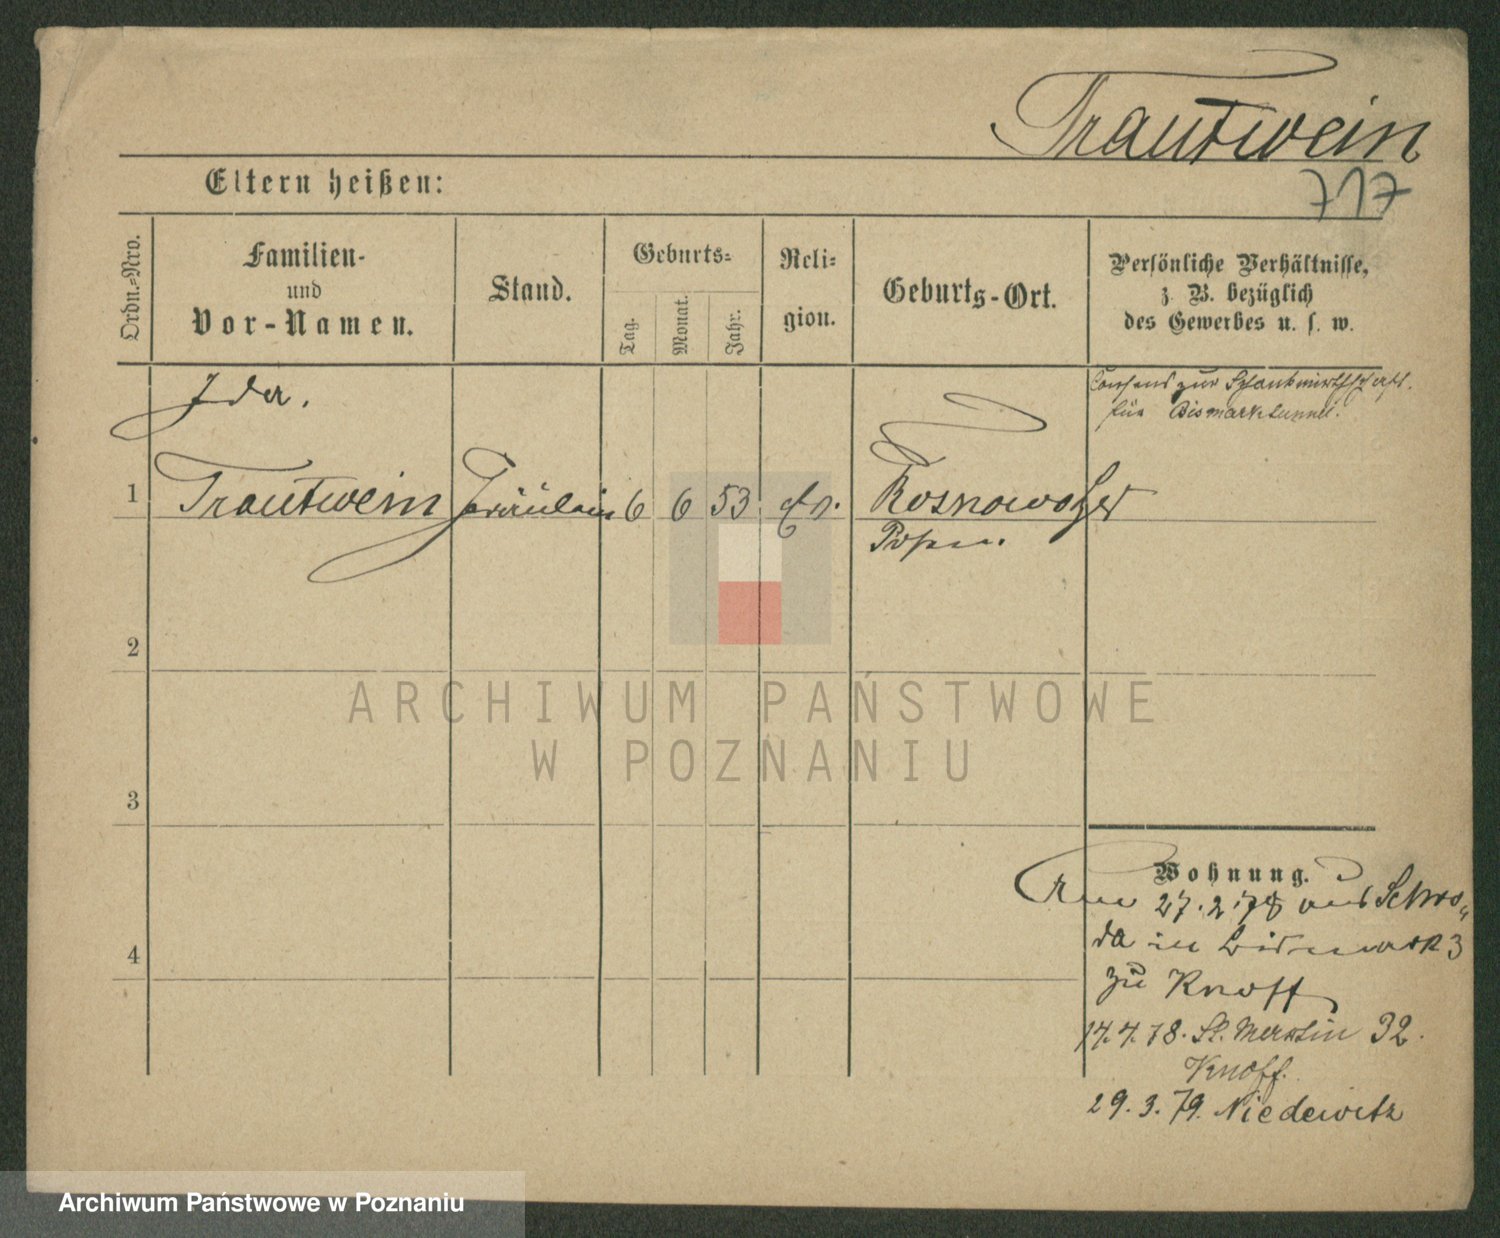 Trautwein
717
Eltern heißen:
Ordn.-Nro.
Familien-
und
Vor-Namen.
Stand.
Geburts-
Tag.
Monat.
Jahr.
Reli-
gion.
Geburts-Ort.
Persönliche Verhältnisse,
z. B. bezüglich
des Gewerbes u. s. w.
Consens zur Schankwirthschaft
für Bismarktunnel.
Ida.
1 Trautwein Fräulein 6 6 53 Ev. Rosnowo
Posen.
2
3
4
Wohnung.
Am 27.2.78 aus Schro-
da in Bismark 3
zu Knoff
14.4.78. St. Martin 32.
Knoff.
29.3.79. Niedewitz
ARCHIWUM PAŃSTWOWE
W POZNANIU
Archiwum Państwowe w Poznaniu